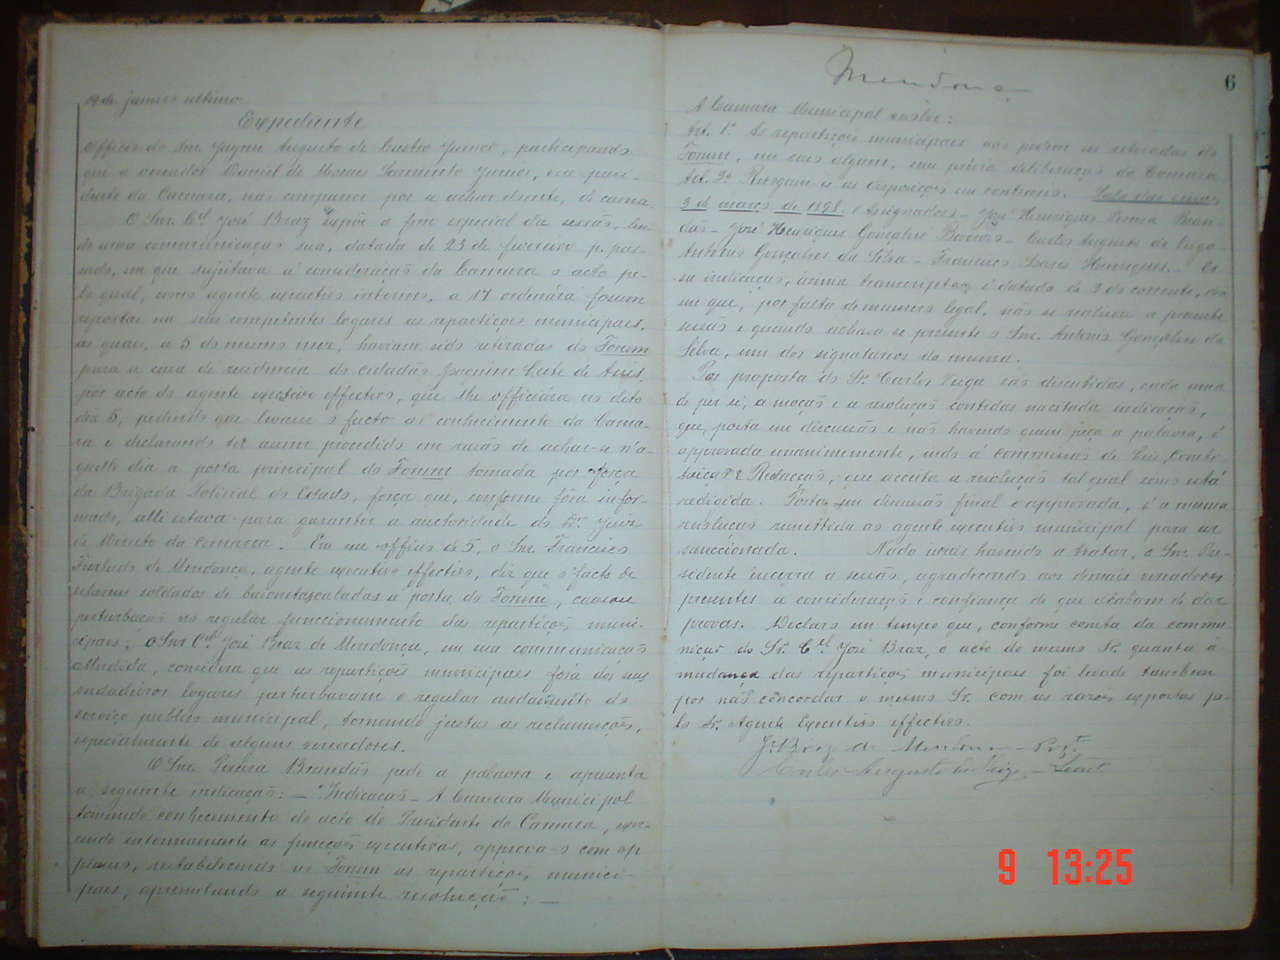 19 de janeiro ultimo.
Expediente
Officio do Snr. Jayme Augusto de Castro Junior, participando
que o vereador Daniel de Moraes Sarmento Junior, vice presi-
dente da Camara, não comparece por se achar doente, de cama.
O Snr. Cel. José Braz expõe o fim especial da sessão, len-
do uma communicação sua, datada de 23 de fevereiro p. pas-
sado, em que sujeitava á consideração da Camara o acto pe-
lo qual, como agente executivo interino, a 17 ordenára fossem
repostas em seus competentes logares as repartições municipaes,
as quaes, a 5 do mesmo mez, haviam sido retiradas do Forum
para a casa de residencia do cidadão Joaquim Leite de Aires,
por acto do agente executivo effectivo, que lhe officiára no dito
dia 5, pedindo que levasse o facto ao conhecimento da Cama-
ra e declarando ter assim procedido em rasão de achar-se n'a-
quelle dia a porta principal do Forum tomada por força
da Brigada Policial do Estado, força que, conforme fôra infor-
mado, alli estava para garantir a auctoridade do Dr. Juiz
de Direito da Comarca. Em seu officio de 5, o Snr. Francisco
Furtado de Mendonça, agente executivo effectivo, diz que o facto de
estarem soldados de baionetas caladas á porta do Forum, causou
perturbação no regular funccionamento das repartições muni-
cipaes; o Snr Cel. José Braz de Mendonça, em sua communicação
alludida, considera que as repartições municipaes fóra dos seus
verdadeiros logares perturbavam o regular andamento do
serviço publico municipal, tornando justas as reclamações,
especialmente de alguns vereadores.
O Snr. Pereira Brandão pede a palavra e apresenta
a seguinte indicação: — "Indicação — A Camara Municipal
tomando conhecimento do acto do Presidente da Camara, exer-
cendo interinamente as funcções executivas, approva-o com ap-
plausos, restabelecendo no Forum as repartições munici-
paes, apresentando a seguinte resolução: —
Mendonça
6
A Camara Municipal resolve:
Art. 1º As repartições municipaes não podem ser retiradas do
Forum, em caso algum, sem prévia deliberação da Camara.
Art. 2º Revogam-se as disposições em contrario. Sala das sessões
3 de março de 1898. (Assignados) — José Henriques Pereira Bran-
dão — José Henriques Gonçalves Barroso — Carlos Augusto da Veiga —
Antonio Gonçalves da Silva — Francisco Soares Henriques. — Es-
sa indicação, acima transcripta, é datada de 3 do corrente, dia
em que, por falta de numero legal, não se realisou a presente
sessão e quando achava-se presente o Snr. Antonio Gonçalves da
Silva, um dos signatarios da mesma.
Por proposta do Sr. Carlos Veiga são discutidas, cada uma
de per si, a moção e a resolução contidas na citada indicação,
que, posta em discussão e não havendo quem peça a palavra, é
approvada unanimemente, indo á commissão de Leis,
e Redacção, que acceita a resolução tal qual como está
redigida. Posta em discussão final e approvada, é a mesma
resolução remettida ao agente executivo municipal para ser
sanccionada. Nada mais havendo a tratar, o Snr. Pre-
sidente encerra a sessão, agradecendo aos demais vereadores
presentes a consideração e confiança de que acabam de dar
provas. Declara em tempo que, conforme consta da commu-
nicação do Sr. Cel. José Braz, o acto do mesmo Sr. quanto á
mudança das repartições municipaes foi levado tambem
por não concordar o mesmo Sr. com as razões expostas pe-
lo Sr. Agente Executivo effectivo.
J. Braz de Mendonça — Prez.te
Carlos Augusto da Veiga — Secret.
9 13:25